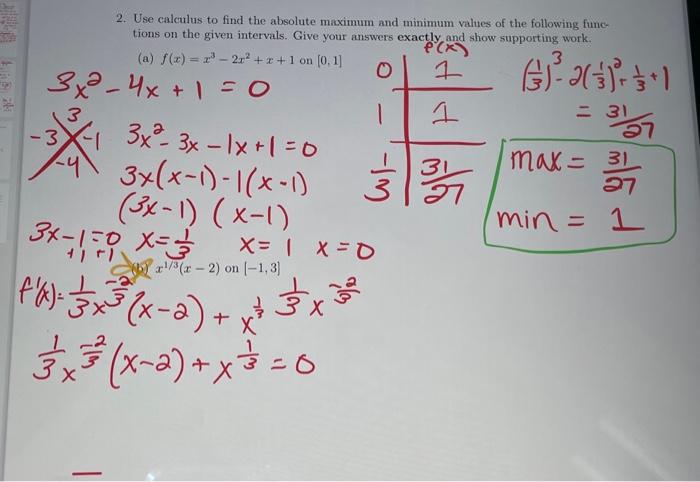 2. Use calculus to find the absolute maximum and minimum values of the following func-
tions on the given intervals. Give your answers exactly and show supporting work.
(a) f(x) = x³ − 2x² + x + 1 on [0, 1]
3x² - 4x + 1 = 0
3
-3 -1
-4
3x² - 3x - 1x + 1 = 0
3x(x-1) - 1(x-1)
(3x-1) (x-1)
3x-1=0 x=1/3 x=1 x=0
+1 +1
f(x)
0 1
1 1
1/3 31/27
(1/3)³ - 2(1/3)² + 1/3 + 1
= 31/27
max = 31/27
min = 1
(b) x^{1/3}(x − 2) on [−1, 3]
f'(x) = 1/3 x^{-2/3} (x-2) + x^{1/3} 1/3 x^{-2/3}
1/3 x^{-2/3} (x-2) + x^{1/3} = 0